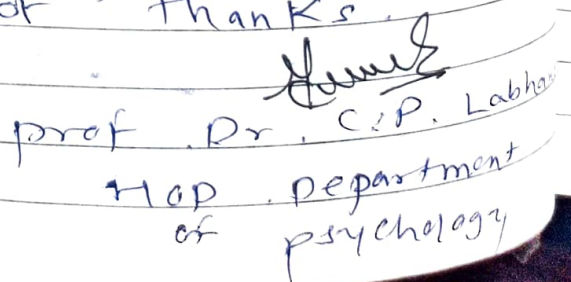 of thanks.
Prof. Dr. C.P. Labha
HOD. Department
of psychology